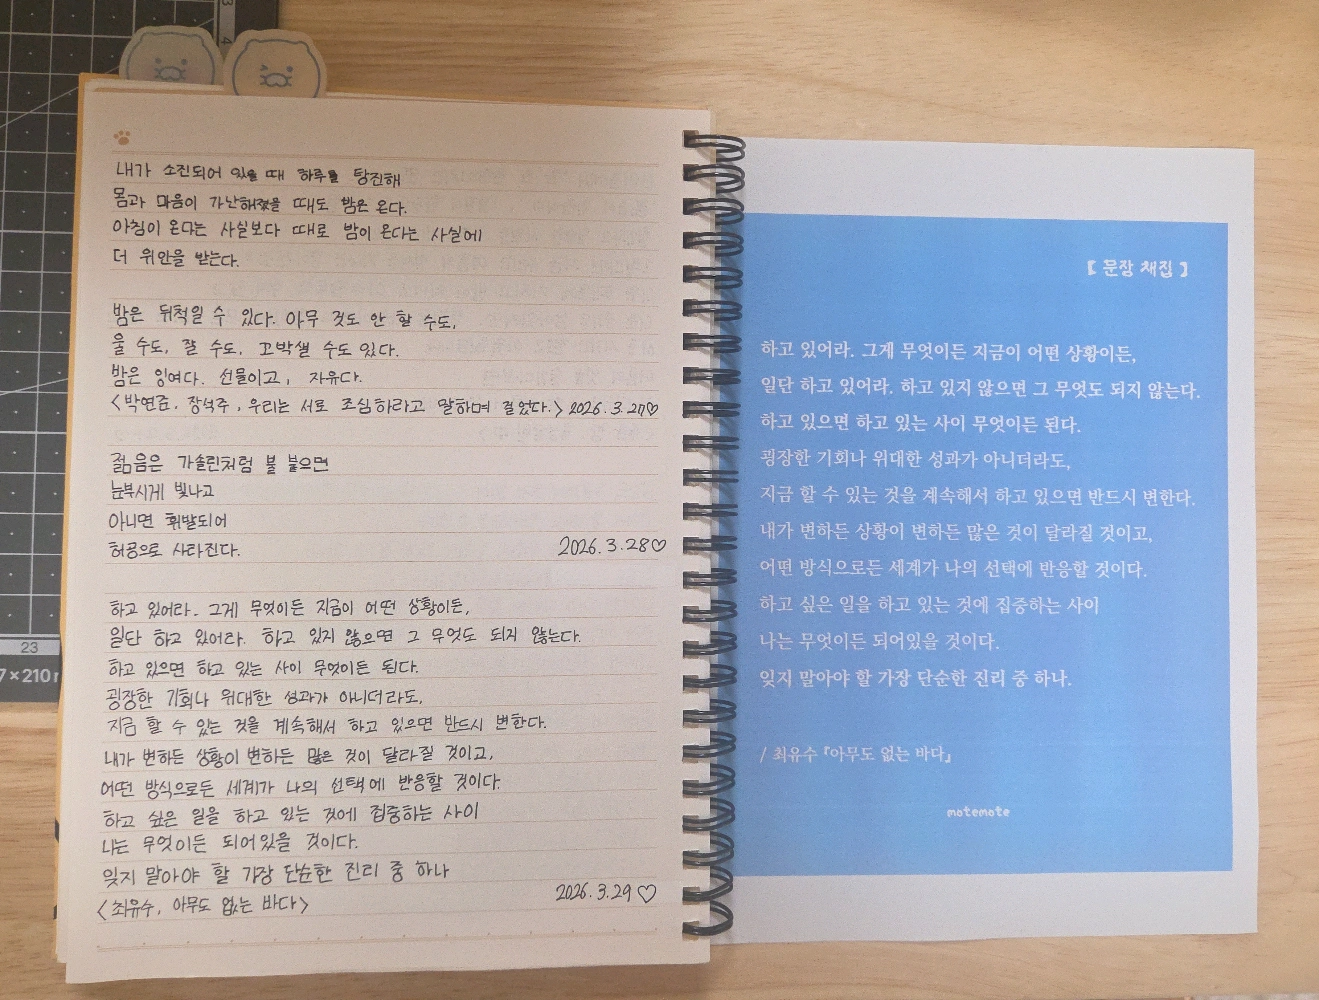 내가 소진되어 있을 때 하루를 탕진해
몸과 마음이 가난해졌을 때도 밤은 온다.
아침이 온다는 사실보다 때로 밤이 온다는 사실에
더 위안을 받는다.
밤은 뒤척일 수 있다. 아무 것도 안 할 수도,
울 수도, 잘 수도, 꼬박샐 수도 있다.
밤은 잉여다. 선물이고, 자유다.
<박연준, 장석주, 우리는 서로 조심하라고 말하며 걸었다.> 2026. 3. 27♡
젊음은 가솔린처럼 불 붙으면
눈부시게 빛나고
아니면 휘발되어
허공으로 사라진다.
2026. 3. 28♡
하고 있어라. 그게 무엇이든 지금이 어떤 상황이든,
일단 하고 있어라. 하고 있지 않으면 그 무엇도 되지 않는다.
하고 있으면 하고 있는 사이 무엇이든 된다.
굉장한 기회나 위대한 성과가 아니더라도,
지금 할 수 있는 것을 계속해서 하고 있으면 반드시 변한다.
내가 변하든 상황이 변하든 많은 것이 달라질 것이고,
어떤 방식으로든 세계가 나의 선택에 반응할 것이다.
하고 싶은 일을 하고 있는 것에 집중하는 사이
나는 무엇이든 되어있을 것이다.
잊지 말아야 할 가장 단순한 진리 중 하나
2026. 3. 29♡
<최유수, 아무도 없는 바다>
【 문장 채집 】
하고 있어라. 그게 무엇이든 지금이 어떤 상황이든,
일단 하고 있어라. 하고 있지 않으면 그 무엇도 되지 않는다.
하고 있으면 하고 있는 사이 무엇이든 된다.
굉장한 기회나 위대한 성과가 아니더라도,
지금 할 수 있는 것을 계속해서 하고 있으면 반드시 변한다.
내가 변하든 상황이 변하든 많은 것이 달라질 것이고,
어떤 방식으로든 세계가 나의 선택에 반응할 것이다.
하고 싶은 일을 하고 있는 것에 집중하는 사이
나는 무엇이든 되어있을 것이다.
잊지 말아야 할 가장 단순한 진리 중 하나.
/ 최유수 『아무도 없는 바다』
motemote
23
7×210
3
4